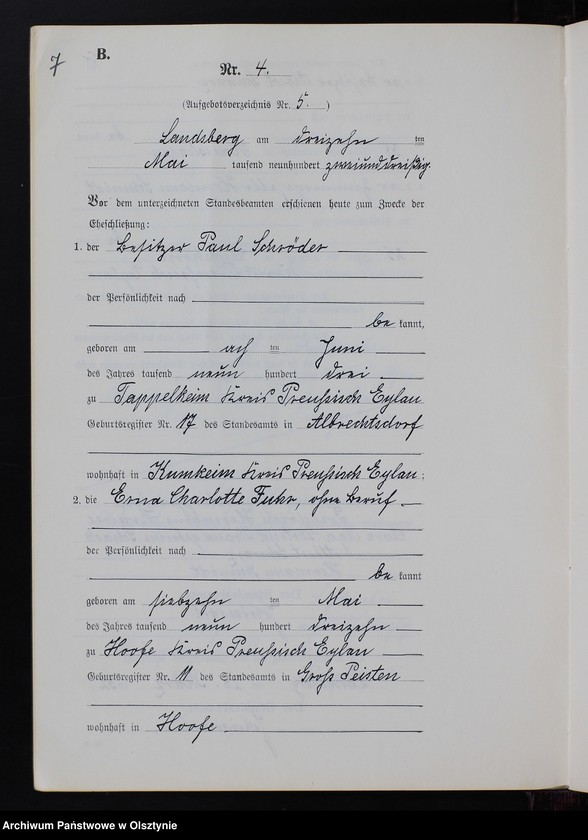 7
B.
Nr. 4.
(Aufgebotsverzeichnis Nr. 5.)
Landsberg am dreizehn ten
Mai tausend neunhundert zweiunddreißig.
Vor dem unterzeichneten Standesbeamten erschienen heute zum Zwecke der
Eheschließung:
1. der Besitzer Paul Schröder
der Persönlichkeit nach
be kannt,
geboren am ach ten Juni
des Jahres tausend neun hundert drei
zu Tappelkeim Kreis Preußisch Eylau
Geburtsregister Nr. 17 des Standesamts in Albrechtsdorf
wohnhaft in Kumkeim Kreis Preußisch Eylau;
2. die Erna Charlotte Fuhr, ohne Beruf
der Persönlichkeit nach
be kannt
geboren am siebzehn ten Mai
des Jahres tausend neun hundert dreizehn
zu Hoofe Kreis Preußisch Eylau
Geburtsregister Nr. 11 des Standesamts in Groß Peisten
wohnhaft in Hoofe
Archiwum Państwowe w Olsztynie